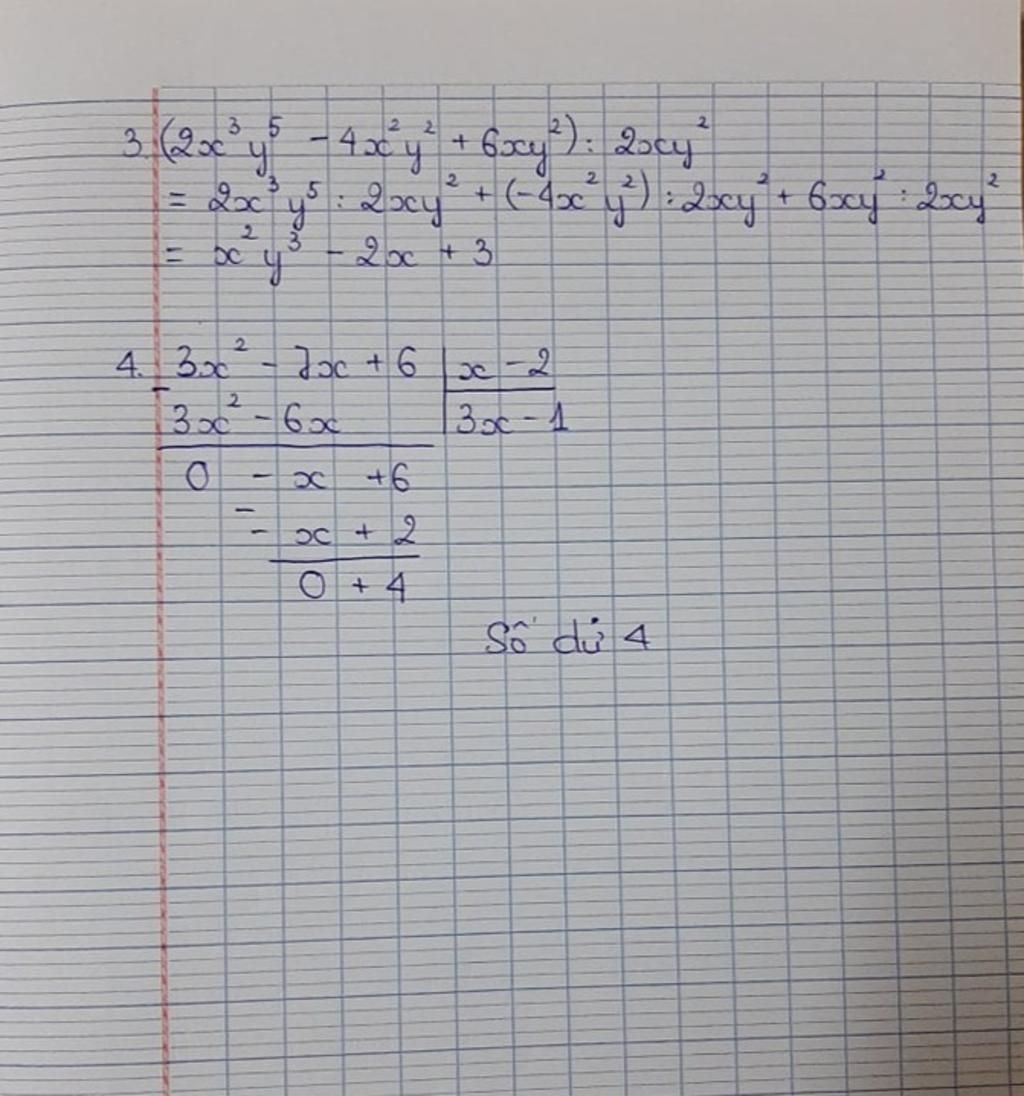 3. (2x³y⁵ - 4x²y² + 6xy²) : 2xy²
= 2x³y⁵ : 2xy² + (-4x²y²) : 2xy² + 6xy² : 2xy²
= x²y³ - 2x + 3
4. 3x² - 7x + 6 | x - 2
- 3x² - 6x | 3x - 1
0 - x + 6
- - x + 2
0 + 4
Số dư 4